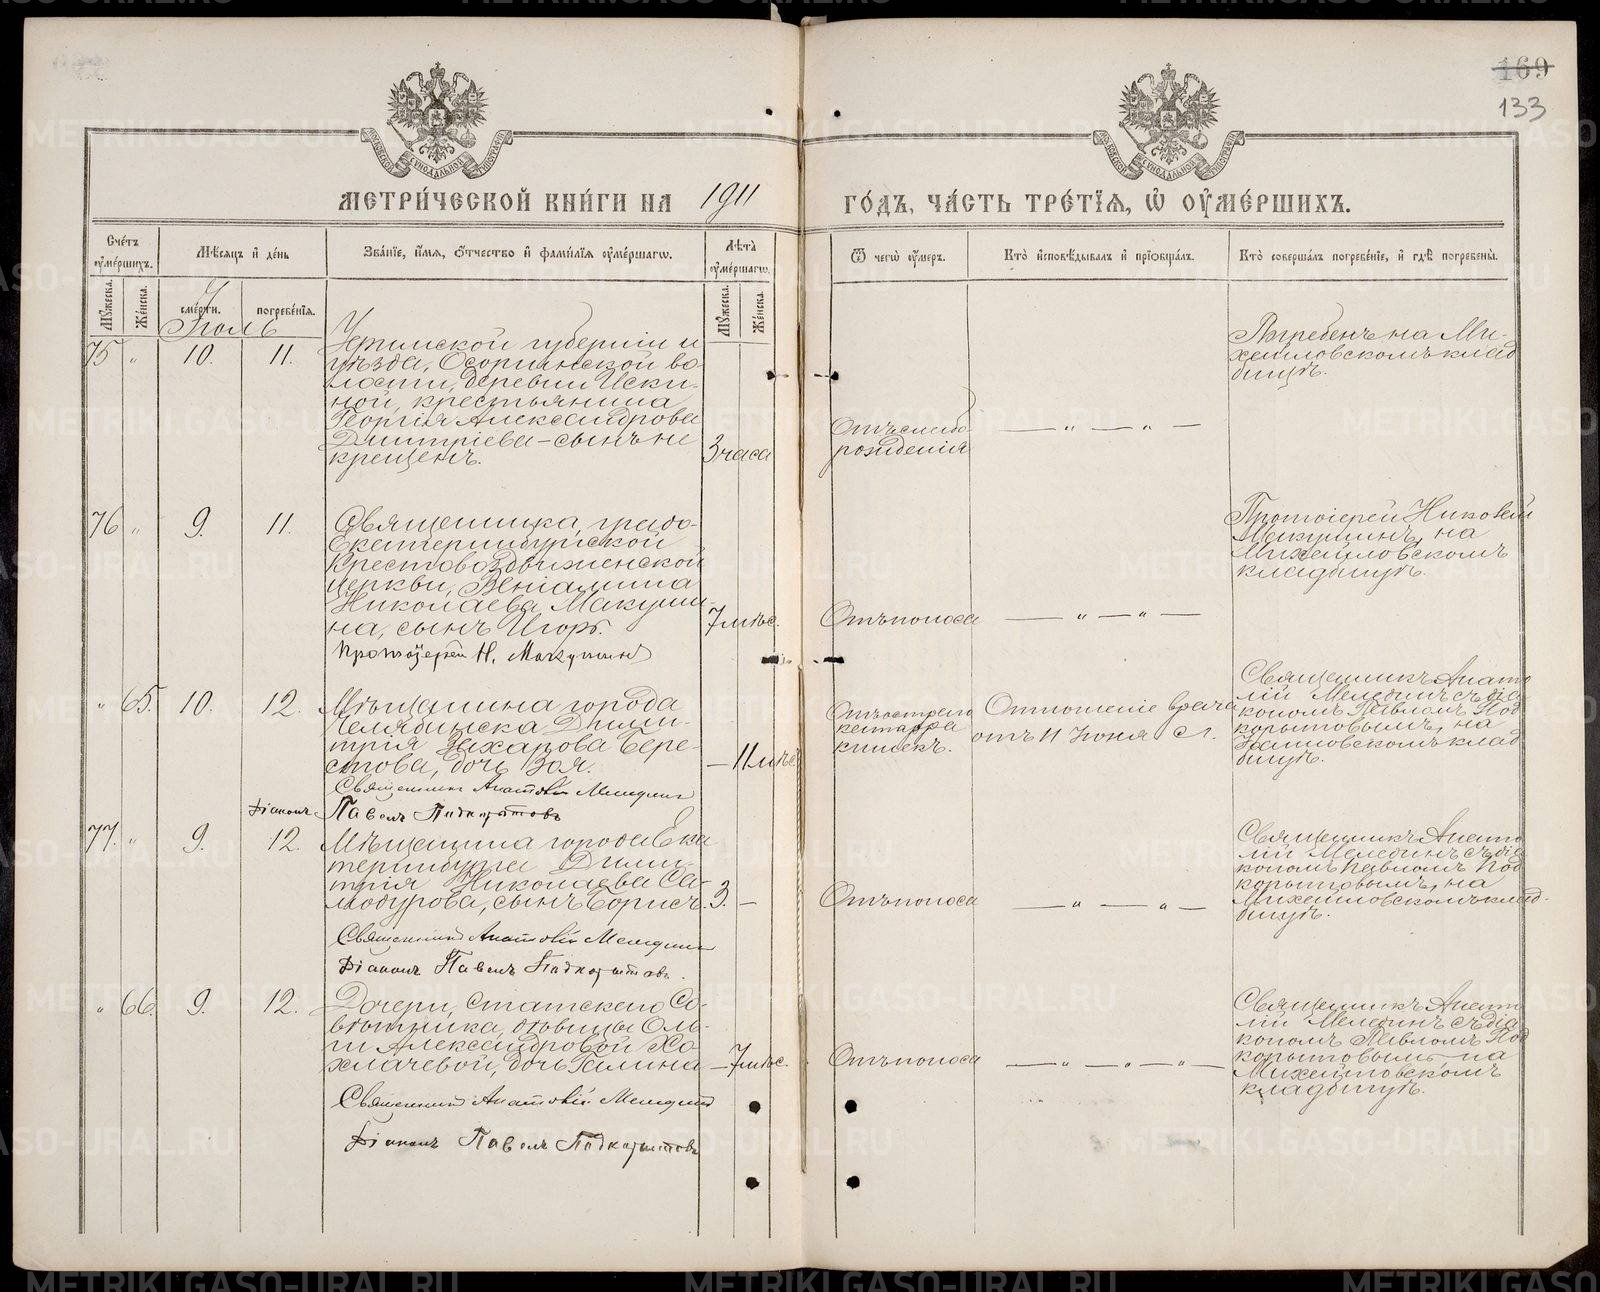 169
133
МЕТРИ́ЧЕСКОЙ КНИ́ГИ НА 1911 ГО́ДЪ, ЧА́СТЬ ТРЕ́ТІЯ, Ѡ҆ ОУ҆МЕ́РШИХЪ.
Сче́тъ оу҆ме́ршихъ.
Мѣ́сяцъ и҆ де́нь
Зва́ніе, и҆́мя, о҆́тчество и҆ фами́лія оу҆ме́ршагѡ.
Лѣ́та оу҆ме́ршагѡ.
Ѿ чегѡ̀ оу҆́меръ.
Кто̀ и҆сповѣ́дывалъ и҆ прїѡбща́лъ.
Кто̀ соверша́лъ погребе́ніе, и҆ гдѣ̀ погребены̀.
Мꙋ́жеска.
Же́нска.
сме́рти.
погребе́нія.
Мꙋ́жеска.
Же́нска.
Іюль
75 " 10. 11.
губерніи и
уѣзда, Осоргинской во-
лости, деревни Иски-
ной, крестьянина
Георгія Александрова
Дмитріева - сынъ не
крещенъ.
3 часа
Отъ слаб.
рожденія
— " — " —
Погребенъ на Ми-
хайловскомъ клад
бищѣ.
76 " 9. 11.
Священника, градо-
Екатеринбургской
Крестовоздвиженской
церкви, Веніамина
Николаева Макуши-
на, сынъ Игорь.
Протоіерей Н. Макушинъ
7 мѣс.
Отъ поноса
— " — " —
Протоіерей Николай
Макушинъ, на
Михайловскомъ
кладбищѣ.
" 65. 10. 12.
Мѣщанина города
Челябинска Дими-
трія Захарова Бере-
стова, дочь Зоя.
Священникъ Анатолій Меледин
Діаконъ Павелъ Подкорытовъ
— 11 мѣс.
Отъ остраго
катарра
кишекъ.
Отношеніе врача
отъ 11 Іюня с г.
Священникъ Анато
лій Мелединъ съ діа
кономъ Павломъ Под
корытовымъ, на
клад
бищѣ.
77. " 9. 12.
Мѣщанина города Ека
теринбурга Дими-
трія Николаева Са-
модурова, сынъ Борисъ.
Священникъ Анатолій Меледин
Діаконъ Павелъ Подкорытовъ.
3. —
Отъ поноса
— " — " —
Священникъ Анато
лій Мелединъ съ діа
кономъ Павломъ Под
корытовымъ, на
Михайловскомъ клад-
бищѣ.
" 66. 9. 12.
Дочери, Статскаго Со-
вѣтника, вдовицы Оль-
ги Александровой Хо-
хлачевой, дочь Галина
Священникъ Анатолій Меледин
Діаконъ Павелъ Подкорытовъ
— 7 мѣс.
Отъ поноса
— " — " — " —
Священникъ Анато
лій Мелединъ съ діа
кономъ Павломъ Под
корытовымъ на
Михайловскомъ
кладбищѣ.
METRIKI.GASO-URAL.RU